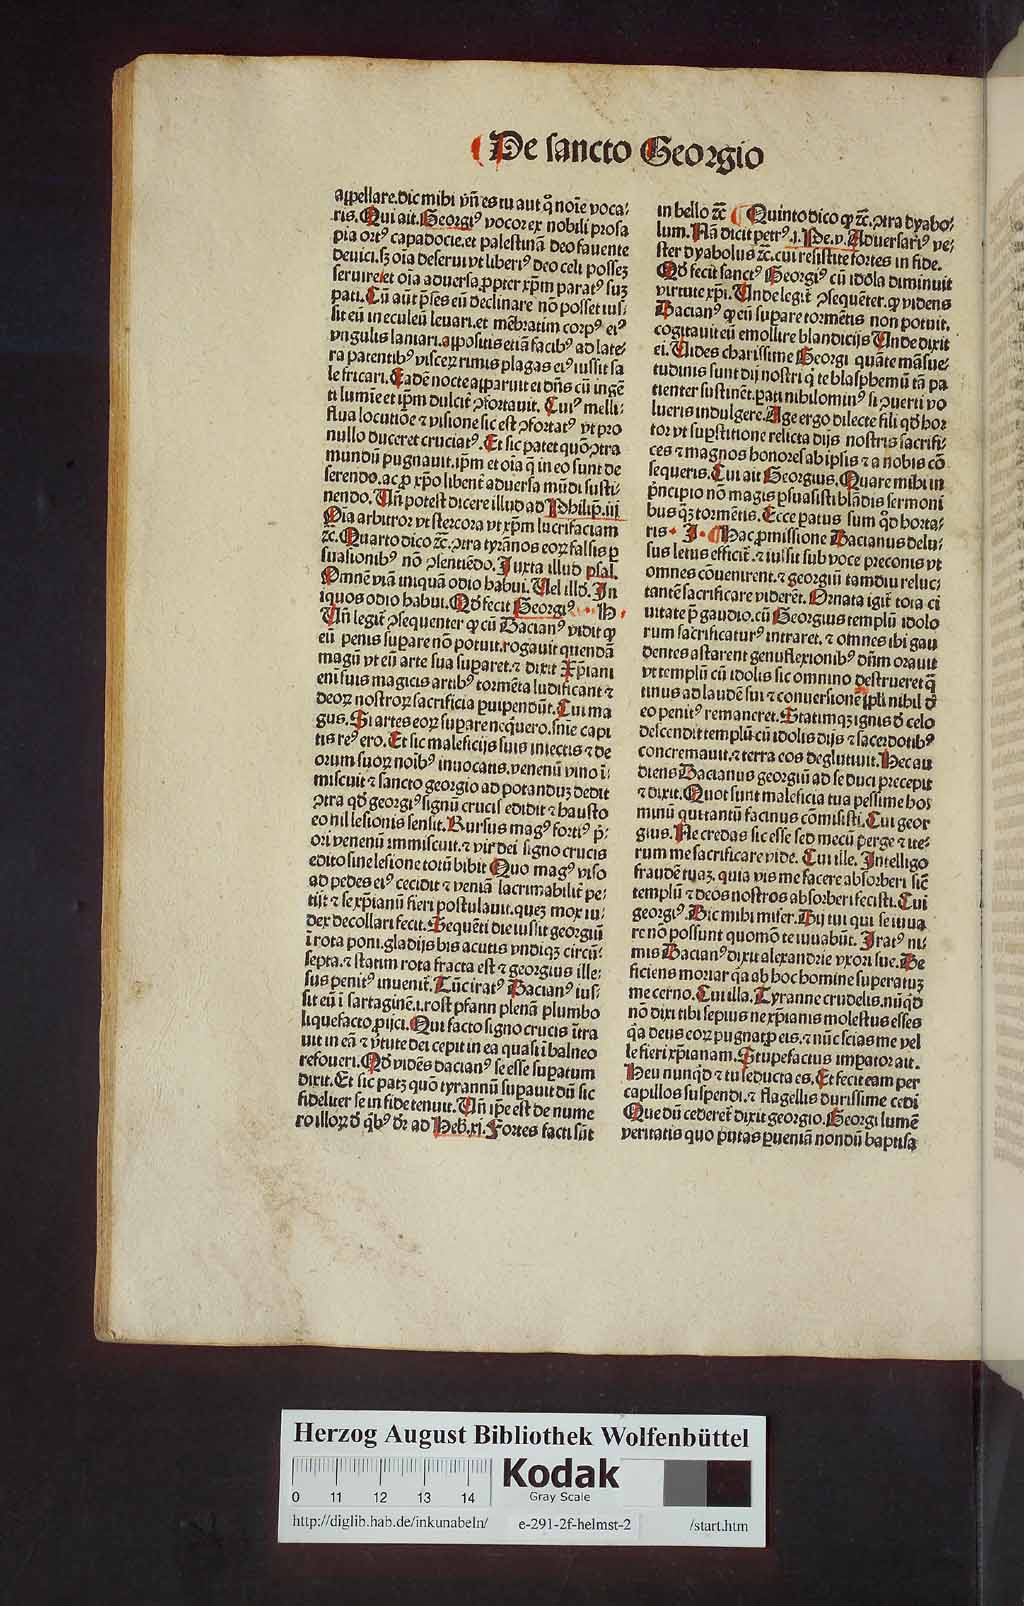 De sancto Georgio
appellare. dic mihi vn̄ es tu aut qͦ noīe voca-
ris. Qui ait. Georgiꝰ vocor ex nobili prosa
pia ortꝰ capadocie. et palestinā deo fauente
deuici. sꝫ oīa deserui vt liberiꝰ deo celi possez
seruire et oīa aduersa ꝓpter xp̄m paratꝰ suꝫ
pati. Cū aūt p̄ses eū declinare nō posset ius-
sit eū in eculeū leuari. et mēbratim corpꝰ eiꝰ
vngulis laniari. appositis etiā facibꝰ ad late-
ra patentibꝰ visceꝝ rimis plagas eiꝰ iussit sa
le fricari. Eadē nocte apparuit ei dn̄s cū ingē
ti lumīe et ip̄m dulcit̄ ↄfortauit. Cuiꝰ melli-
flua locutiōe ⁊ visione sic est ↄfortatꝰ vt pro
nullo duceret cruciatꝰ. Et sic patet quō ↄtra
mundū pugnauit. ip̄m et oīa q̄ in eo sunt de
serendo. ac ꝓ xp̄o libent̄ aduersa mūdi susti-
nendo. Vn̄ potest dicere illud ad Philip̄. iij
Oīa arbitror vt stercora vt xp̄m lucrifaciam
⁊c̄. Quarto dico ⁊c̄. ↄtra tyrānos eoꝝ falsis ꝑ
suasionibꝰ nō ↄsentiēdo. Juxta illud psal.
Omnē viā iniquā odio habui. Uel illd̄. In
iquos odio habui. Qd̄ fecit Georgiꝰ. H
Vn̄ legit̄ ↄsequenter ꝙ cū Dacianꝰ vidit ꝙ
eū penis suꝑare nō potuit. rogauit quendā
magū vt eū arte sua suꝑaret. ⁊ dixit Xp̄iani
eni suis magicis artibꝰ tormēta ludificant ⁊
deoꝝ nostroꝝ sacrificia ꝑuipendūt. Cui ma
gus. Si artes eoꝝ suꝑare neq̄uero. sn̄ie capi
tis reꝰ ero. Et sic maleficijs suis iniectis ⁊ de
orum suoꝝ noībꝰ inuocatis. venenū vino ī-
miscuit ⁊ sancto georgio ad potanduꝫ dedit
ↄtra qd̄ georgiꝰ signū crucis edidit ⁊ hausto
eo nil lesionis sensit. Rursus magꝰ fortiꝰ p̄-
ori venenū immiscuit. ⁊ vir dei signo crucis
edito sine lesione totū bibit Quo magꝰ viso
ad pedes eiꝰ cecidit ⁊ veniā lacrimabilit̄ pe-
tijt ⁊ se xp̄ianū fieri postulauit. queꝫ mox iu-
dex decollari fecit. Sequēti die iussit georgiū
ī rota poni. gladijs bis acutis vndiqꝫ circū-
septa. ⁊ statim rota fracta est ⁊ georgius ille-
sus penitꝰ inuenit̄. Tūc iratꝰ Dacianꝰ ius-
sit eū ī sartaginē. i. rost pfann plenā plumbo
liquefacto ꝓijci. Qui facto signo crucis ītra
uit in eā ⁊ v̄tute dei cepit in ea quasi ī balneo
refoueri. Qd̄ vidēs dacianꝰ se esse suꝑatum
dixit. Et sic patꝫ quō tyrannū suꝑauit dū sic
fideliter se in fide tenuit. Vn̄ ip̄e est de nume
ro illoꝝ d̄ q̄bꝰ d̄r ad Heb̄. xi. Fortes facti sūt
in bello ⁊c̄ Quinto dico ꝙ ⁊c̄. ↄtra dyabo-
lum. Nā dicit petrꝰ. j. Pe. v. Aduersariꝰ ve-
ster dyabolus ⁊c̄. cui resistite fortes in fide.
Qd̄ fecit sanctꝰ Georgiꝰ cū idola diminuit
virtute xp̄i. Vnde legit̄ ↄsequēter. ꝙ videns
Dacianꝰ ꝙ eū suꝑare tormētis non potuit.
cogitauit eū emollire blandicijs Vnde dixit
ei. Vides charissime Georgi quāte māsue-
tudinis sunt dij nostri q̇ te blasphemū tā pa
tienter sustinēt. ꝑati nihilominꝰ si ↄuerti vo
lueris indulgere. Age ergo dilecte fili qd̄ hor
tor vt suꝑstitione relicta dijs nostris sacrifi-
ces ⁊ magnos honores ab ipsis ⁊ a nobis cō
sequeris. Cui ait Georgius. Quare mihi in
p̄ncipio nō magis ꝑsuasisti blādis sermoni
bus qꝫ tormētis. Ecce ꝑatus sum qd̄ horta-
ris. J. Hac ꝓmissione Dacianus delu-
sus letus efficit̄. ⁊ iussit sub voce preconis vt
omnes cōuenirent. ⁊ georgiū tamdiu reluc-
tantē sacrificare viderēt. Ornata igit̄ tota ci
uitate p̄ gaudio. cū Georgius templū idolo
rum sacrificaturꝰ intraret. ⁊ omnes ibi gau
dentes astarent genuflexionibꝰ dn̄m orauit
vt templū cū idolis sic omnino destrueret q̄
tinus ad laudē sui ⁊ conuersionē ppli nihil d̄
eo penitꝰ remaneret. Statimqꝫ ignis d̄ celo
descendit templū cū idolis dijs ⁊ sacerdotibꝰ
concremauit. ⁊ terra eos deglutiuit. Hec au
diens Dacianus georgiū ad se duci precepit
⁊ dixit. Quot sunt maleficia tua pessime ho-
minū qui tantū facinus cōmisisti. Cui geor
gius. Ne credas sic esse sed mecū ꝑge ⁊ ite-
rum me sacrificare vide. Cui ille. Intelligo
fraudē tuaꝫ. quia vis me facere absorberi sic̄
templū ⁊ deos nostros absorberi fecisti. Cui
georgiꝰ. Dic mihi miser. Dij tui qui se iuua
re nō possunt quomō te iuuabūt. Iratꝰ ni-
mis Dacianꝰ dixit alexandrie vxori sue. De
ficiens moriar q̇a ab hoc homine superatuꝫ
me cerno. Cui illa. Tyranne crudelis. nūqͥd
nō dixi tibi sepius ne xp̄ianis molestus esses
q̇a deus eoꝝ pugnat ꝓ eis. ⁊ nūc scias me vel
le fieri xp̄ianam. Stupefactus imꝑator ait.
Heu nunqͥd ⁊ tu seducta es. Et fecit eam per
capillos suspendi. ⁊ flagellis durissime cedi
Que dū cederet̄ dixit georgio. Georgi lumē
veritatis quo putas ꝑueniā nondū baptisa
Herzog August Bibliothek Wolfenbüttel
0 11 12 13 14
Kodak
Gray Scale
http://diglib.hab.de/inkunabeln/ e-291-2f-helmst-2 /start.htm